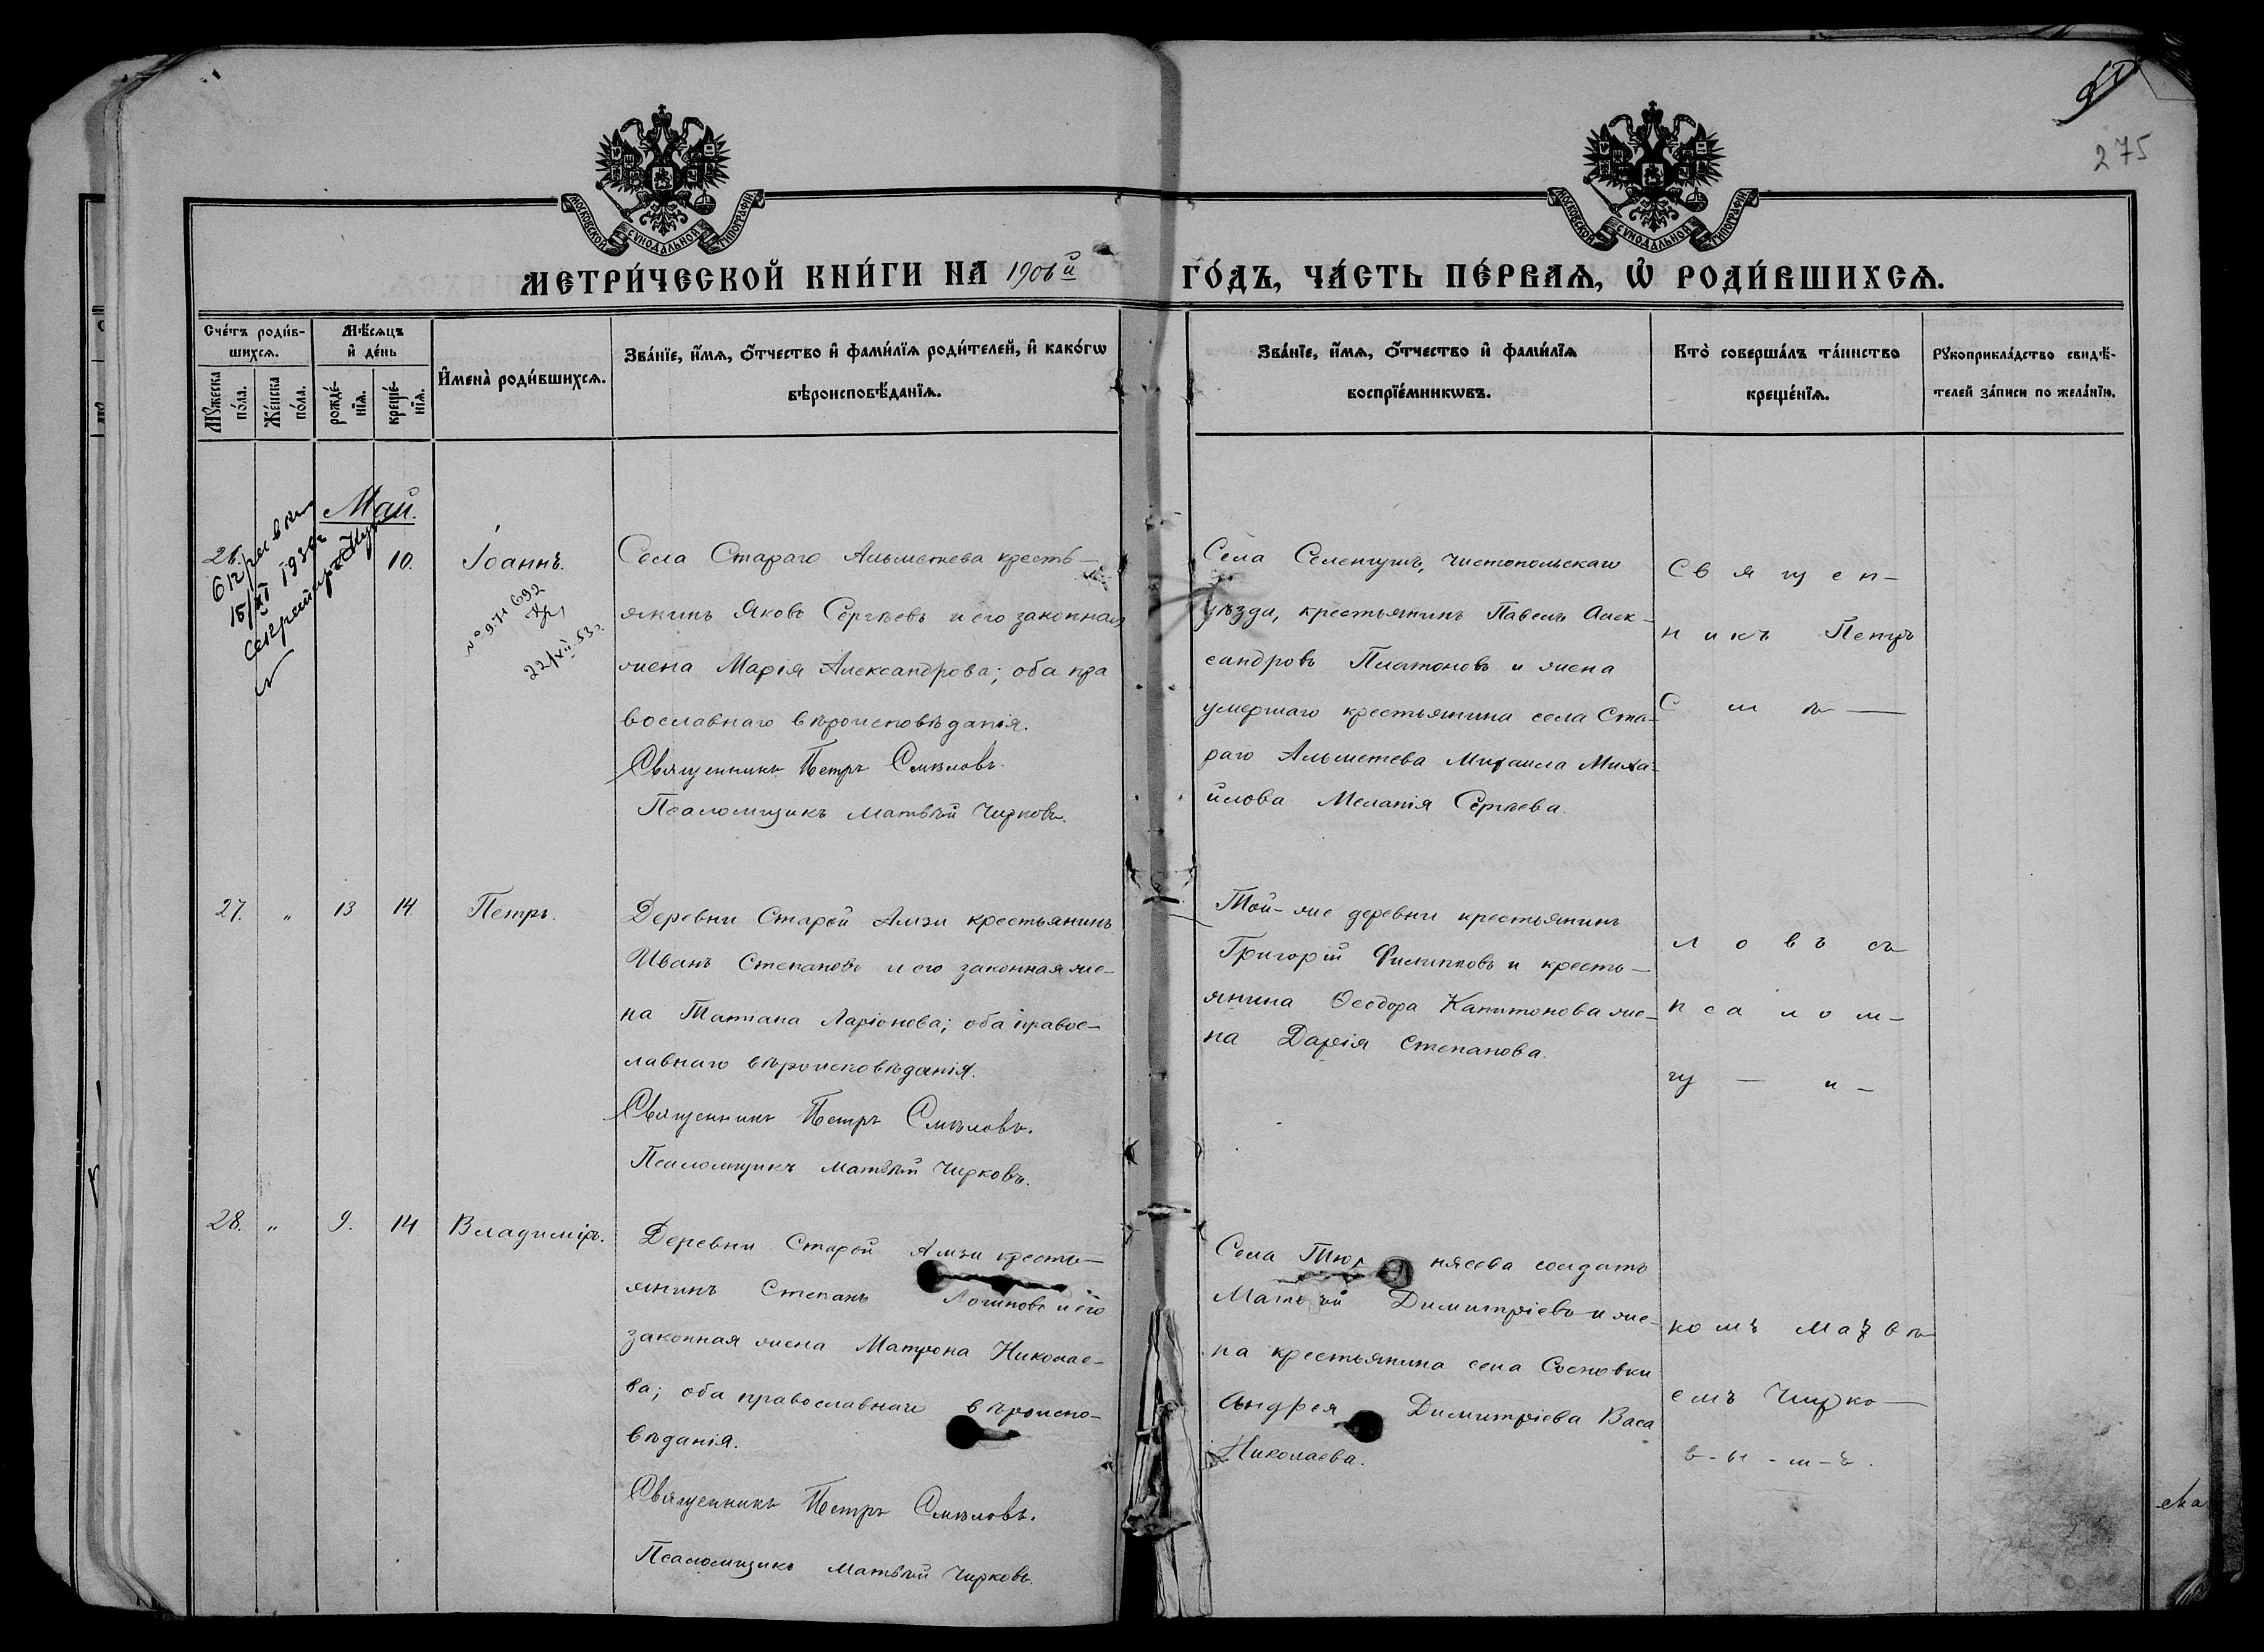 275
МОСКОВСКОЙ СУНОДАЛЬНОЙ ТИПОГРАФІИ
МОСКОВСКОЙ СУНОДАЛЬНОЙ ТИПОГРАФІИ
МЕТРИ́ЧЕСКОЙ КНИ́ГИ НА 1906й ГО́ДЪ, ЧА́СТЬ ПЕ́РВАѦ, Ѡ҆ РОДИ́ВШИХСѦ.
Сче́тъ роди́в-
шихсѧ.
Мꙋ́жеска
по́ла.
Же́нска
по́ла.
Мѣ́сѧцъ
и҆ де́нь
рожде́-
нїѧ.
креще́-
нїѧ.
И҆мена̀ роди́вшихсѧ.
Зва́нїе, и҆́мѧ, ѻ҆́тчество и҆ фами́лїѧ роди́телей, и҆ како́гѡ
вѣроисповѣ́данїѧ.
Зва́нїе, и҆́мѧ, ѻ҆́тчество и҆ фами́лїѧ
воспрїе́мникѡвъ.
Кто̀ соверша́лъ та́инство
креще́нїѧ.
Рꙋкоприкла́дство свидѣ́-
телей за́писи по жела́нїю.
Май.
26.
10.
Іоаннъ.
№ 971 692
22/XII 53 г.
Села Стараго Альметева кресть-
янинъ Яковъ Сергѣевъ и его законная
жена Марія Александрова; оба пра
вославнаго вѣроисповѣданія.
Священникъ Петръ Смѣловъ.
Псаломщикъ Матвѣй Чирковъ.
Села Селенгушъ, Чистопольскаго
уѣзда, крестьянинъ Павелъ Алек-
сандровъ Платоновъ и жена
умершаго крестьянина села Ста-
раго Альметева Михаила Миха-
йлова Меланія Сергѣева.
Священ-
никъ Петръ
Смѣ-
27. " 13 14 Петръ.
Деревни Старой Амзи крестьянинъ
Иванъ Степановъ и его законная же-
на Татіана Ларіонова; оба правос-
лавнаго вѣроисповѣданія.
Священникъ Петръ Смѣловъ.
Псаломщикъ Матвѣй Чирковъ.
Той-же деревни крестьянинъ
Григорій Филипповъ и кресть-
янина Ѳеодора Капитонова же-
на Дарія Степанова.
ловъ съ
псалом-
щ - и -
28. " 9. 14 Владиміръ.
Деревни Старой Амзи кресть-
янинъ Степанъ Логиновъ и его
законная жена Матрона Николае-
ва; оба православнаго вѣроиспо-
вѣданія.
Священникъ Петръ Смѣловъ.
Псаломщикъ Матвѣй Чирковъ.
Села нясева солдатъ
Матвѣй Димитріевъ и же-
на крестьянина села Сосновки
Андрея Димитріева Васа
Николаева.
комъ Матвѣ
емъ Чирко-
в-ы-м-ъ.